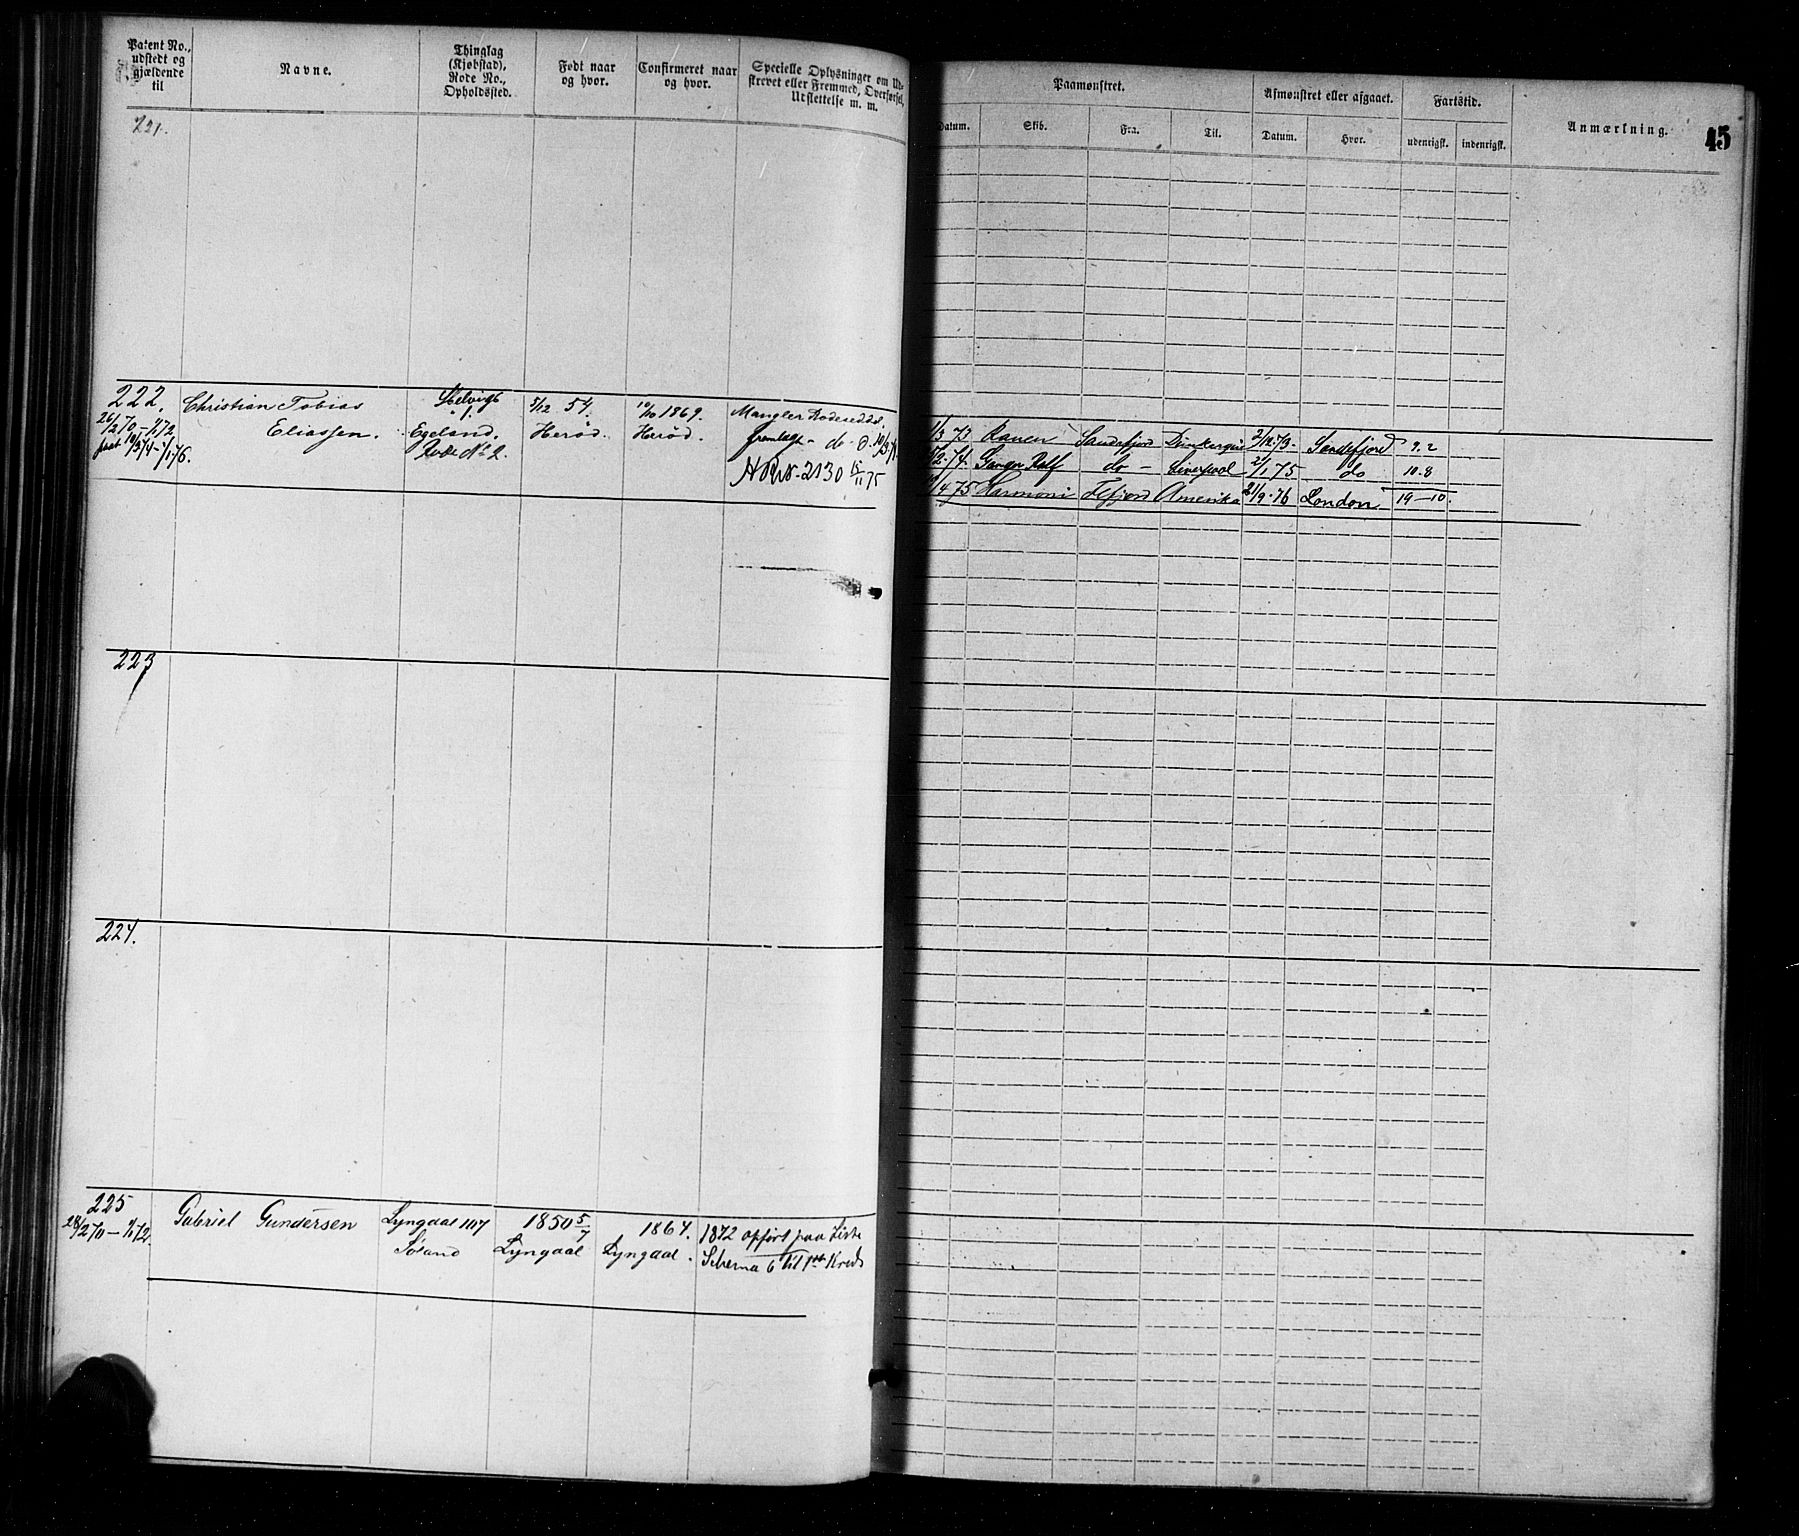 Patent No., udstedt og gjældende til
Navne.
Thinglag (Kjøbstad), Rode No., Opholdssted.
Født naar og hvor.
Confirmeret naar og hvor.
Specielle Oplysninger om Ud-
skrevet eller Fremmed, Overførsel,
Udslettelse m. m.
Paamønstret.
Afmønstret eller afgaaet.
Fartstid.
Anmærkning.
45
Datum.
Skib.
Fra.
Til.
Datum.
Hvor.
udenrigsk.
indenrigsk.
221.
222.
26/2 70 – 1/1 72
Christian Tobias
Eliassen.
Egeland.
Rode No 2.
5/12 54.
Herød.
10/10 1869.
Herød.
Mangler Rodeseddel
fremlagt – do –
2130 15/11 75
1/3 73 Ranen Sandefjord Dünkerque 2/12 73 Sandefjord 9.2
Ganger Rolf do – Liverpool 2/1 75 do 10.8
/4 75 Harmoni Amerika 21/9 76 London 19–10.
223
224.
225
28/2 70 – 1/1 72.
Gabriel Gundersen
Lyngdal 107
1850 5/7
Lyngdal
1864.
Lyngdal.
1872 opført paa Liste
Schema 6 til 1ste Kreds